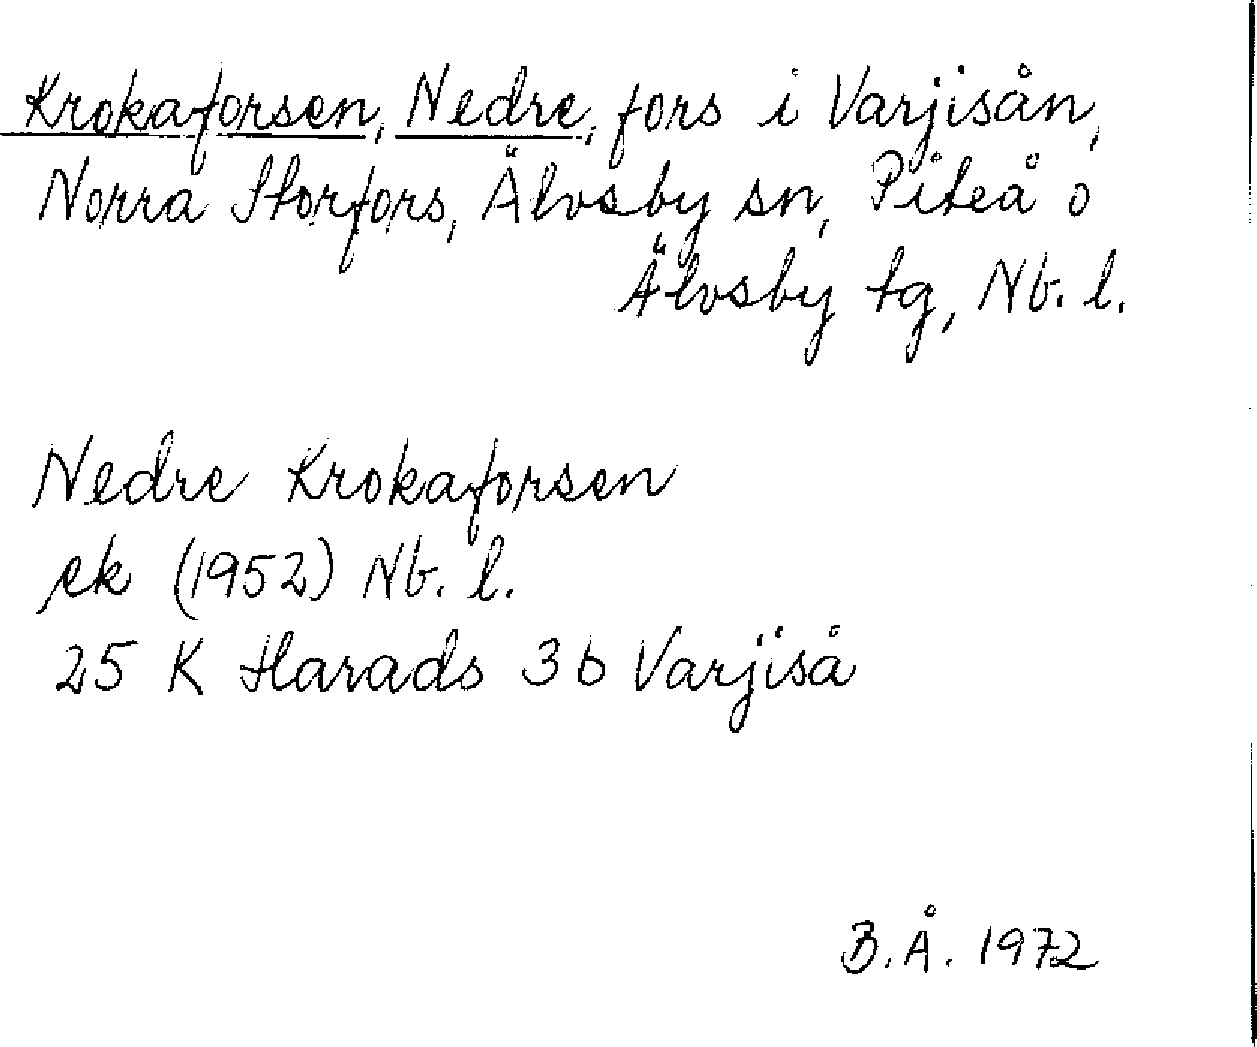 Krokaforsen, Nedre, fors i Varjisån,
Norra Storfors, Älvsby sn, Piteå o
Älvsby tg, Nb. l.
Nedre Krokaforsen
ek (1952) Nb. l.
25 K Harads 3b Varjiså
B.Å. 1972